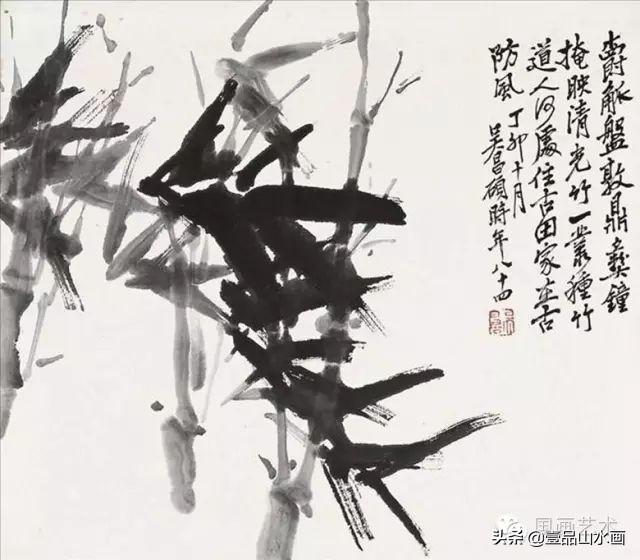 爵觚盤敦鼎彝鐘
掩映清光竹一叢種竹
道人何處住古田家在古
防風丁卯十月
吳昌碩時年八十四
国画艺术
头条@壹品山水画